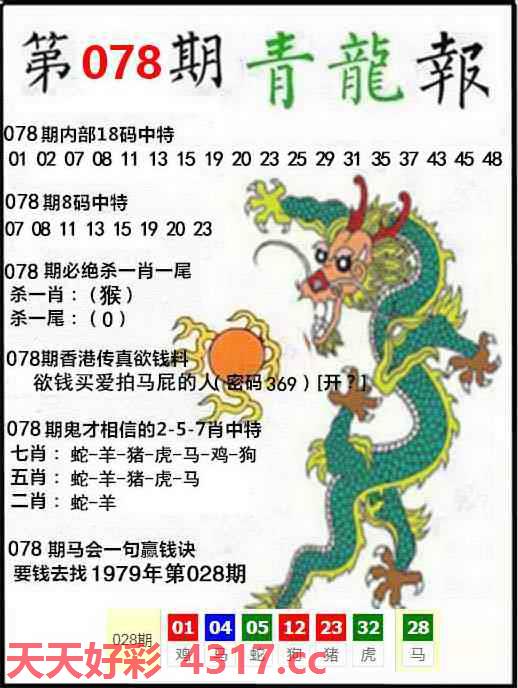 第078期 青龍報
078期内部18码中特
01 02 07 08 11 13 15 19 20 23 25 29 31 35 37 43 45 48
078期8码中特
07 08 11 13 15 19 20 23
078期必绝杀一肖一尾
杀一肖：（猴）
杀一尾：（0）
078期香港传真欲钱料
欲钱买爱拍马屁的人(密码369)[开?]
078期鬼才相信的2-5-7肖中特
七肖：蛇-羊-猪-虎-马-鸡-狗
五肖：蛇-羊-猪-虎-马
二肖：蛇-羊
078期马会一句赢钱诀
要钱去找1979年第028期
028期 01 04 05 12 23 32 28
鸡 马 蛇 狗 猪 虎 马
天天好彩 4317.cc